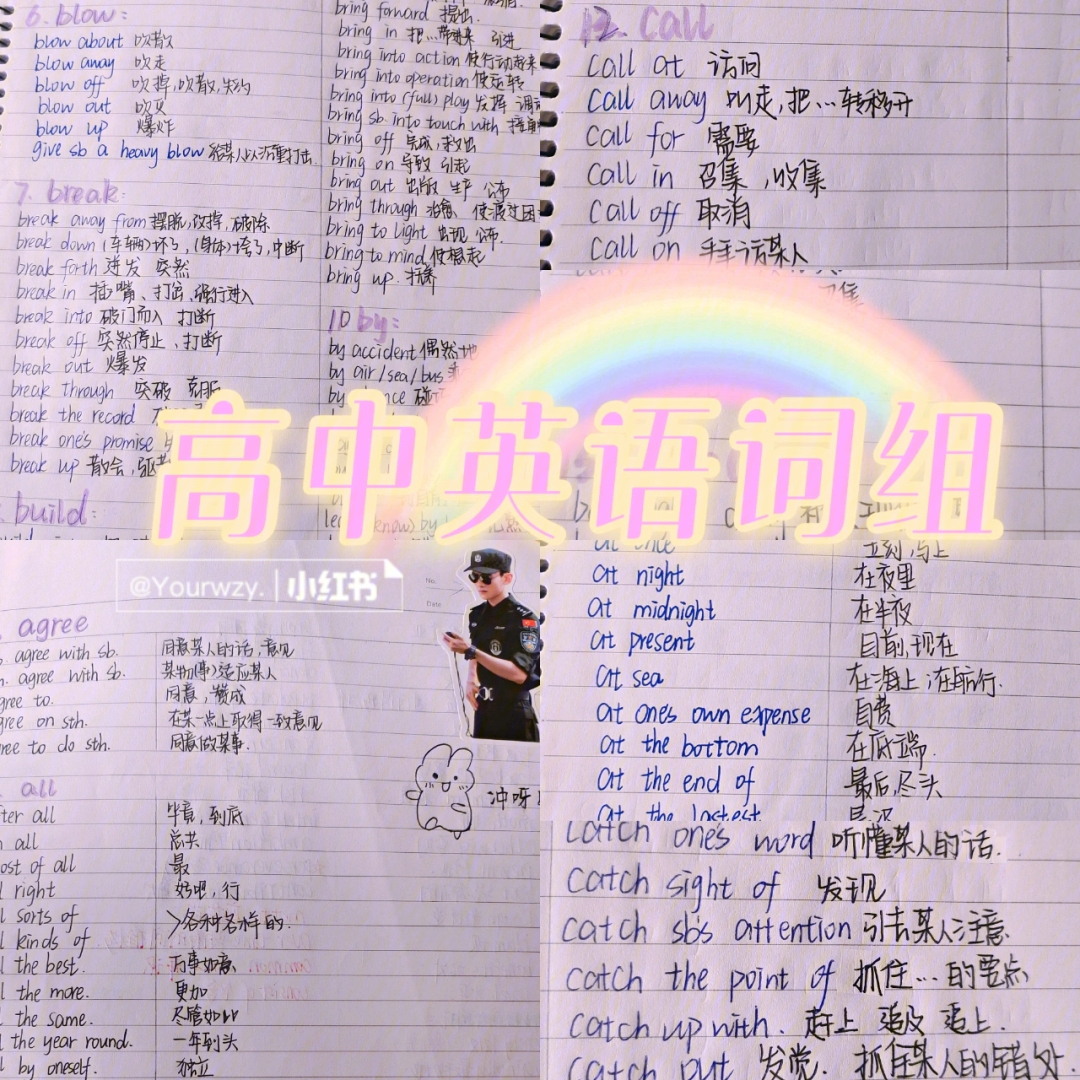 6. blow:
blow about 吹散
blow away 吹走
blow off 吹掉,吹散,失约
blow out 吹灭
blow up 爆炸
give sb a heavy blow 给某人以沉重打击.
7. break:
break away from 摆脱,改掉,破除
break down (车辆)坏了,(身体)垮了,中断
break forth 迸发 突然
break in 插嘴、打岔、强行进入
break into 破门而入 打断
break off 突然停止、打断
break out 爆发
break through 突破 克服
break the record
break one's promise
break up 散会,
build:
bring forward 提出.
bring in 把…带进来 引进
bring into action 使行动起来
bring into operation 使运转
bring into (full) play 发挥
bring sb into touch with
bring off 完成,救出
bring on 导致 引起
bring out 出版 生产 公布
bring through
bring to light 出现 公布.
bring to mind 使想起
bring up.
10 by:
by accident 偶然地
by air/sea/bus
12. call
call at 访问
call away 叫走,把…转移开
call for 需要
call in 召集,收集
call off 取消
call on 拜访某人
高中英语词组
@Yourwzy. 小红书
No.
Date
agree
agree with sb. 同意某人的话,意见
agree with sb.
to. 同意,赞成
on sth. 在某一点上取得一致意见
to do sth. 同意做某事.
all
all 毕竟,到底
all 总共
of all 最
right 好吧,行
sorts of
kinds of 各种各样的.
the best. 万事如意
the more. 更加
the same. 尽管如此
the year round. 一年到头
by oneself. 独立
冲呀
at once 立刻,马上
at night 在夜里
at midnight 在半夜
at present 目前,现在
at sea 在海上;在航行.
at one's own expense 自费
at the bottom 在底端.
at the end of 最后,尽头
at the lastest
catch one's word 听懂某人的话.
catch sight of 发现
catch sb's attention 引去某人注意
catch the point of 抓住…的要点
catch up with. 赶上 追及 追上.
catch out 发觉. 抓住某人的错处.